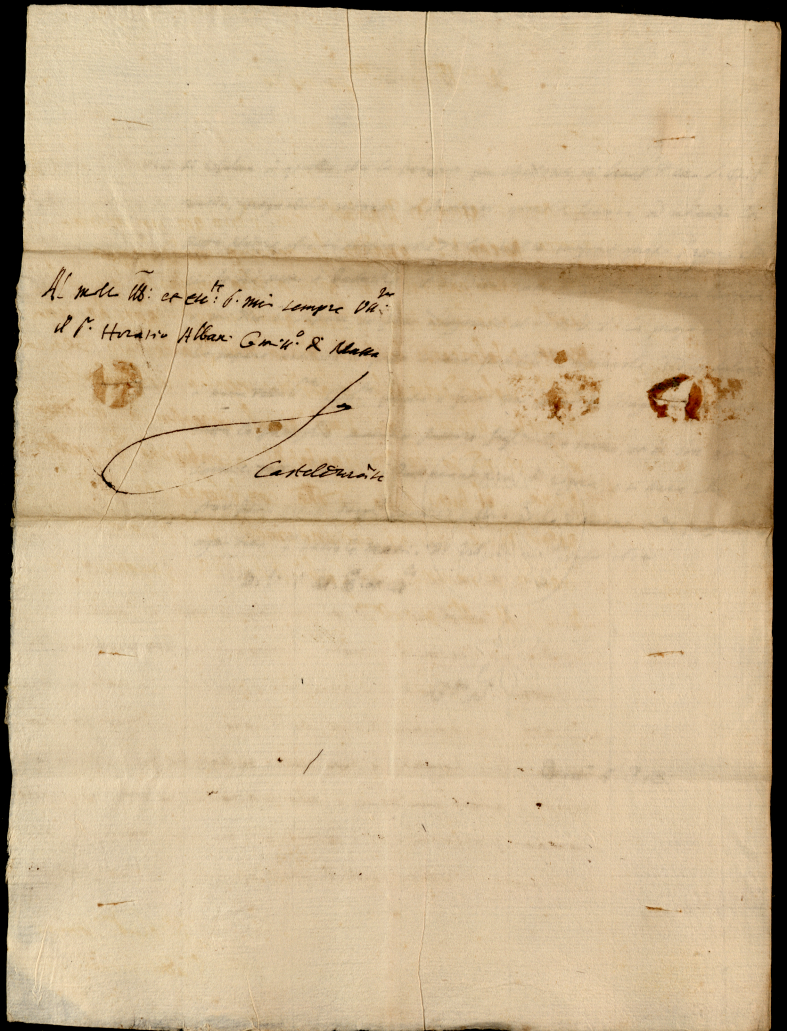 Al molto Ill: et ecc:te S.r mio sempre oss:
il S.r Horatio Alban: Com:rio di Massa
Casteldurante